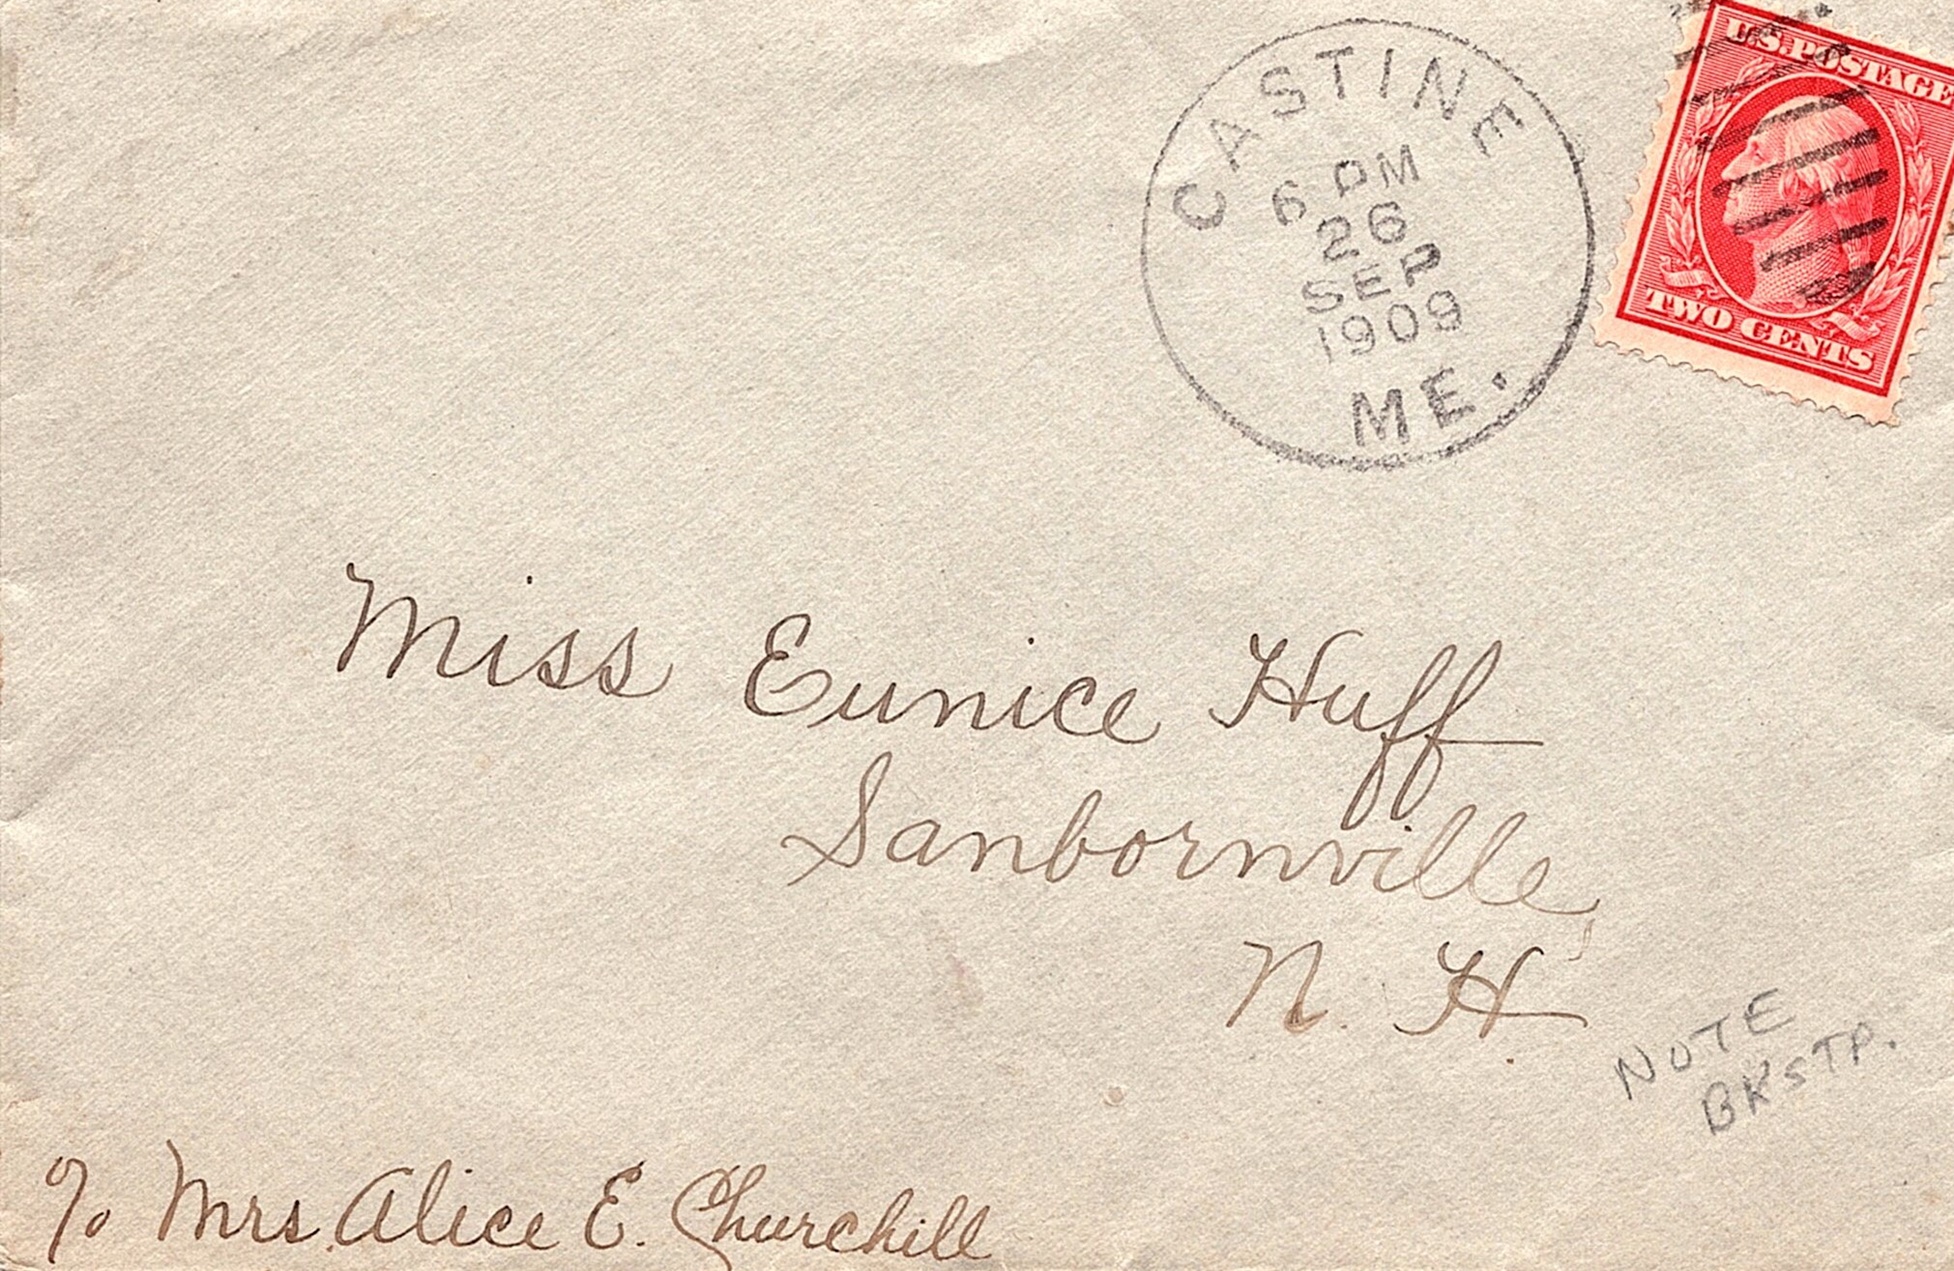 CASTINE
6 PM
26
SEP
1909
ME.
U.S. POSTAGE
TWO CENTS
Miss Eunice Huff
Sanbornville,
N. H.
NOTE
BKSTP.
c/o Mrs. Alice E. Churchill